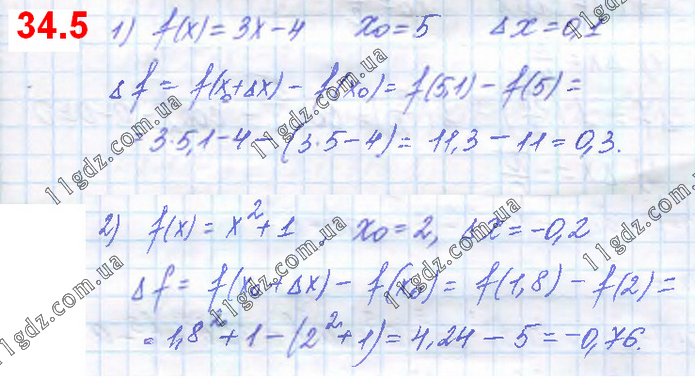 34.5
1) f(x) = 3x - 4 x₀ = 5 Δx = 0,1
Δf = f(x₀+Δx) - f(x₀) = f(5,1) - f(5) =
= 3·5,1 - 4 - (3·5 - 4) = 11,3 - 11 = 0,3.
2) f(x) = x² + 1 x₀ = 2, Δx = -0,2
Δf = f(x₀+Δx) - f(x₀) = f(1,8) - f(2) =
= 1,8² + 1 - (2² + 1) = 4,24 - 5 = -0,76.
11gdz.com.ua
11gdz.com.ua
11gdz.com.ua
11gdz.com.ua
11gdz.com.ua
11gdz.com.ua